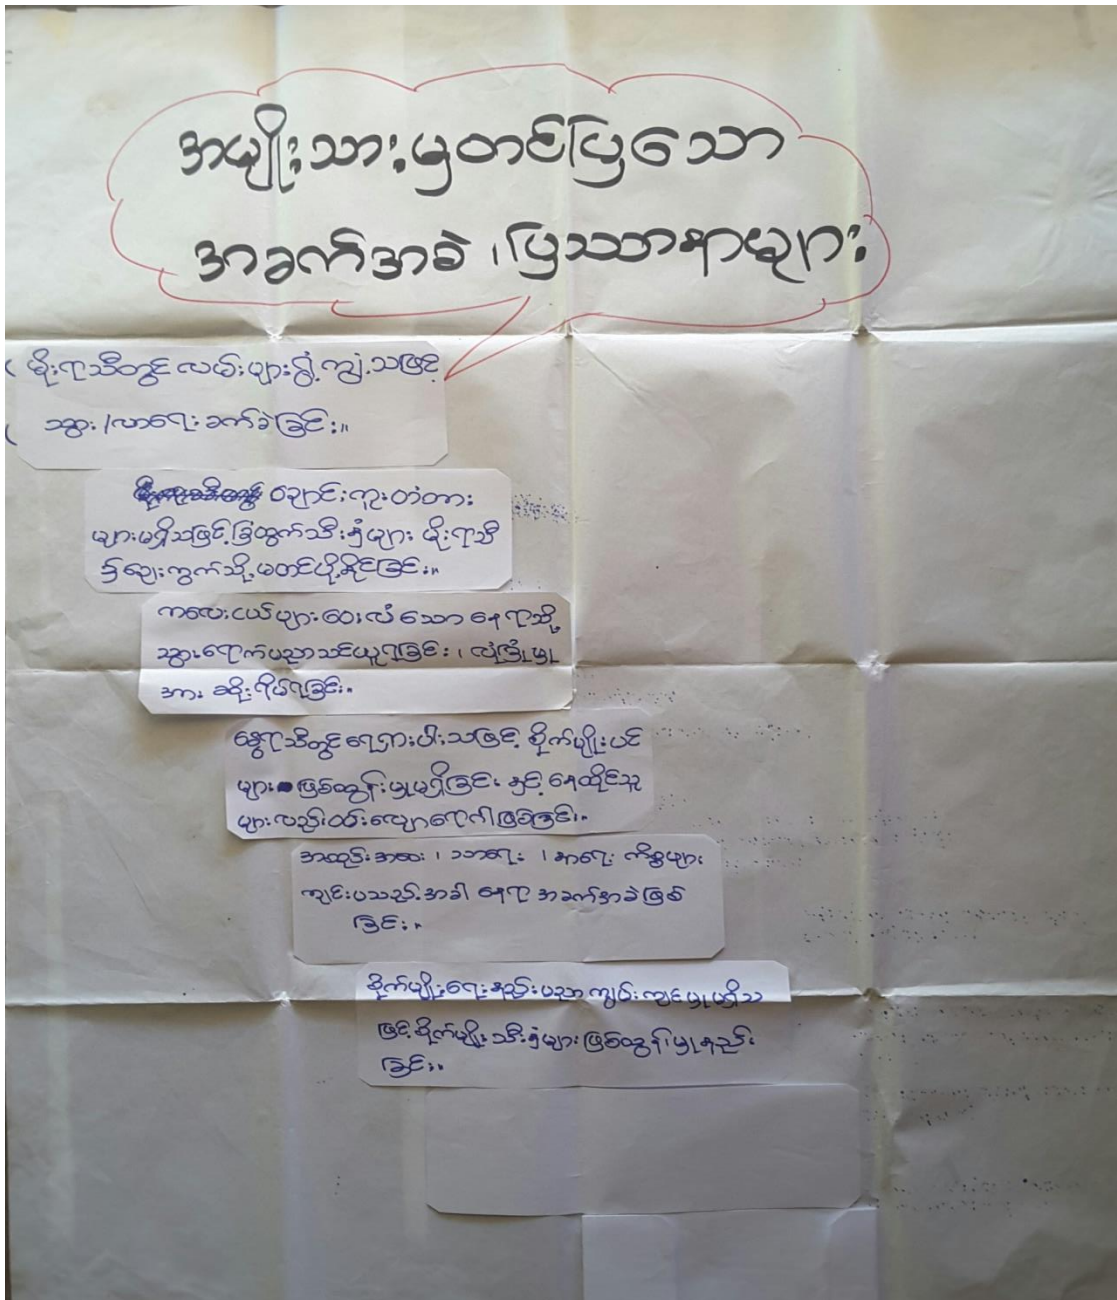 အမျိုးသားမှတင်ပြသော
အခက်အခဲ၊ ပြဿာနာများ
မိုးရာသီတွင် လမ်းများရွှံ့ကျွံ့သဖြင့်
သွား/လာရေး ခက်ခဲခြင်း။
ချောင်းကူးတံတား
များမရှိသဖြင့် ခြံထွက်သီးနှံများ မိုးရာသီ
၌ ဈေးကွက်သို့ မတင်ပို့နိုင်ခြင်း။
ကလေးငယ်များ ဝေးလံသော နေရာသို့
သွားရောက်ပညာသင်ယူရခြင်း၊ လုံခြုံမှု
အား စိုးရိမ်ရခြင်း။
နွေရာသီတွင် ရေရှားပါးသဖြင့် စိုက်ပျိုးပင်
များ ဖြစ်ထွန်းမှုမရှိခြင်း နှင့် နေထိုင်သူ
များလည်း ဝမ်းလျောရောဂါဖြစ်ခြင်း။
အစည်းအဝေး၊ သာရေး၊ နာရေး ကိစ္စများ
ကျင်းပသည့်အခါ နေရာ အခက်အခဲဖြစ်
ခြင်း။
စိုက်ပျိုးရေးနည်းပညာ ကျွမ်းကျင်မှုမရှိသ
ဖြင့် စိုက်ပျိုးသီးနှံများ ဖြစ်ထွန်းမှုနည်း
ခြင်း။